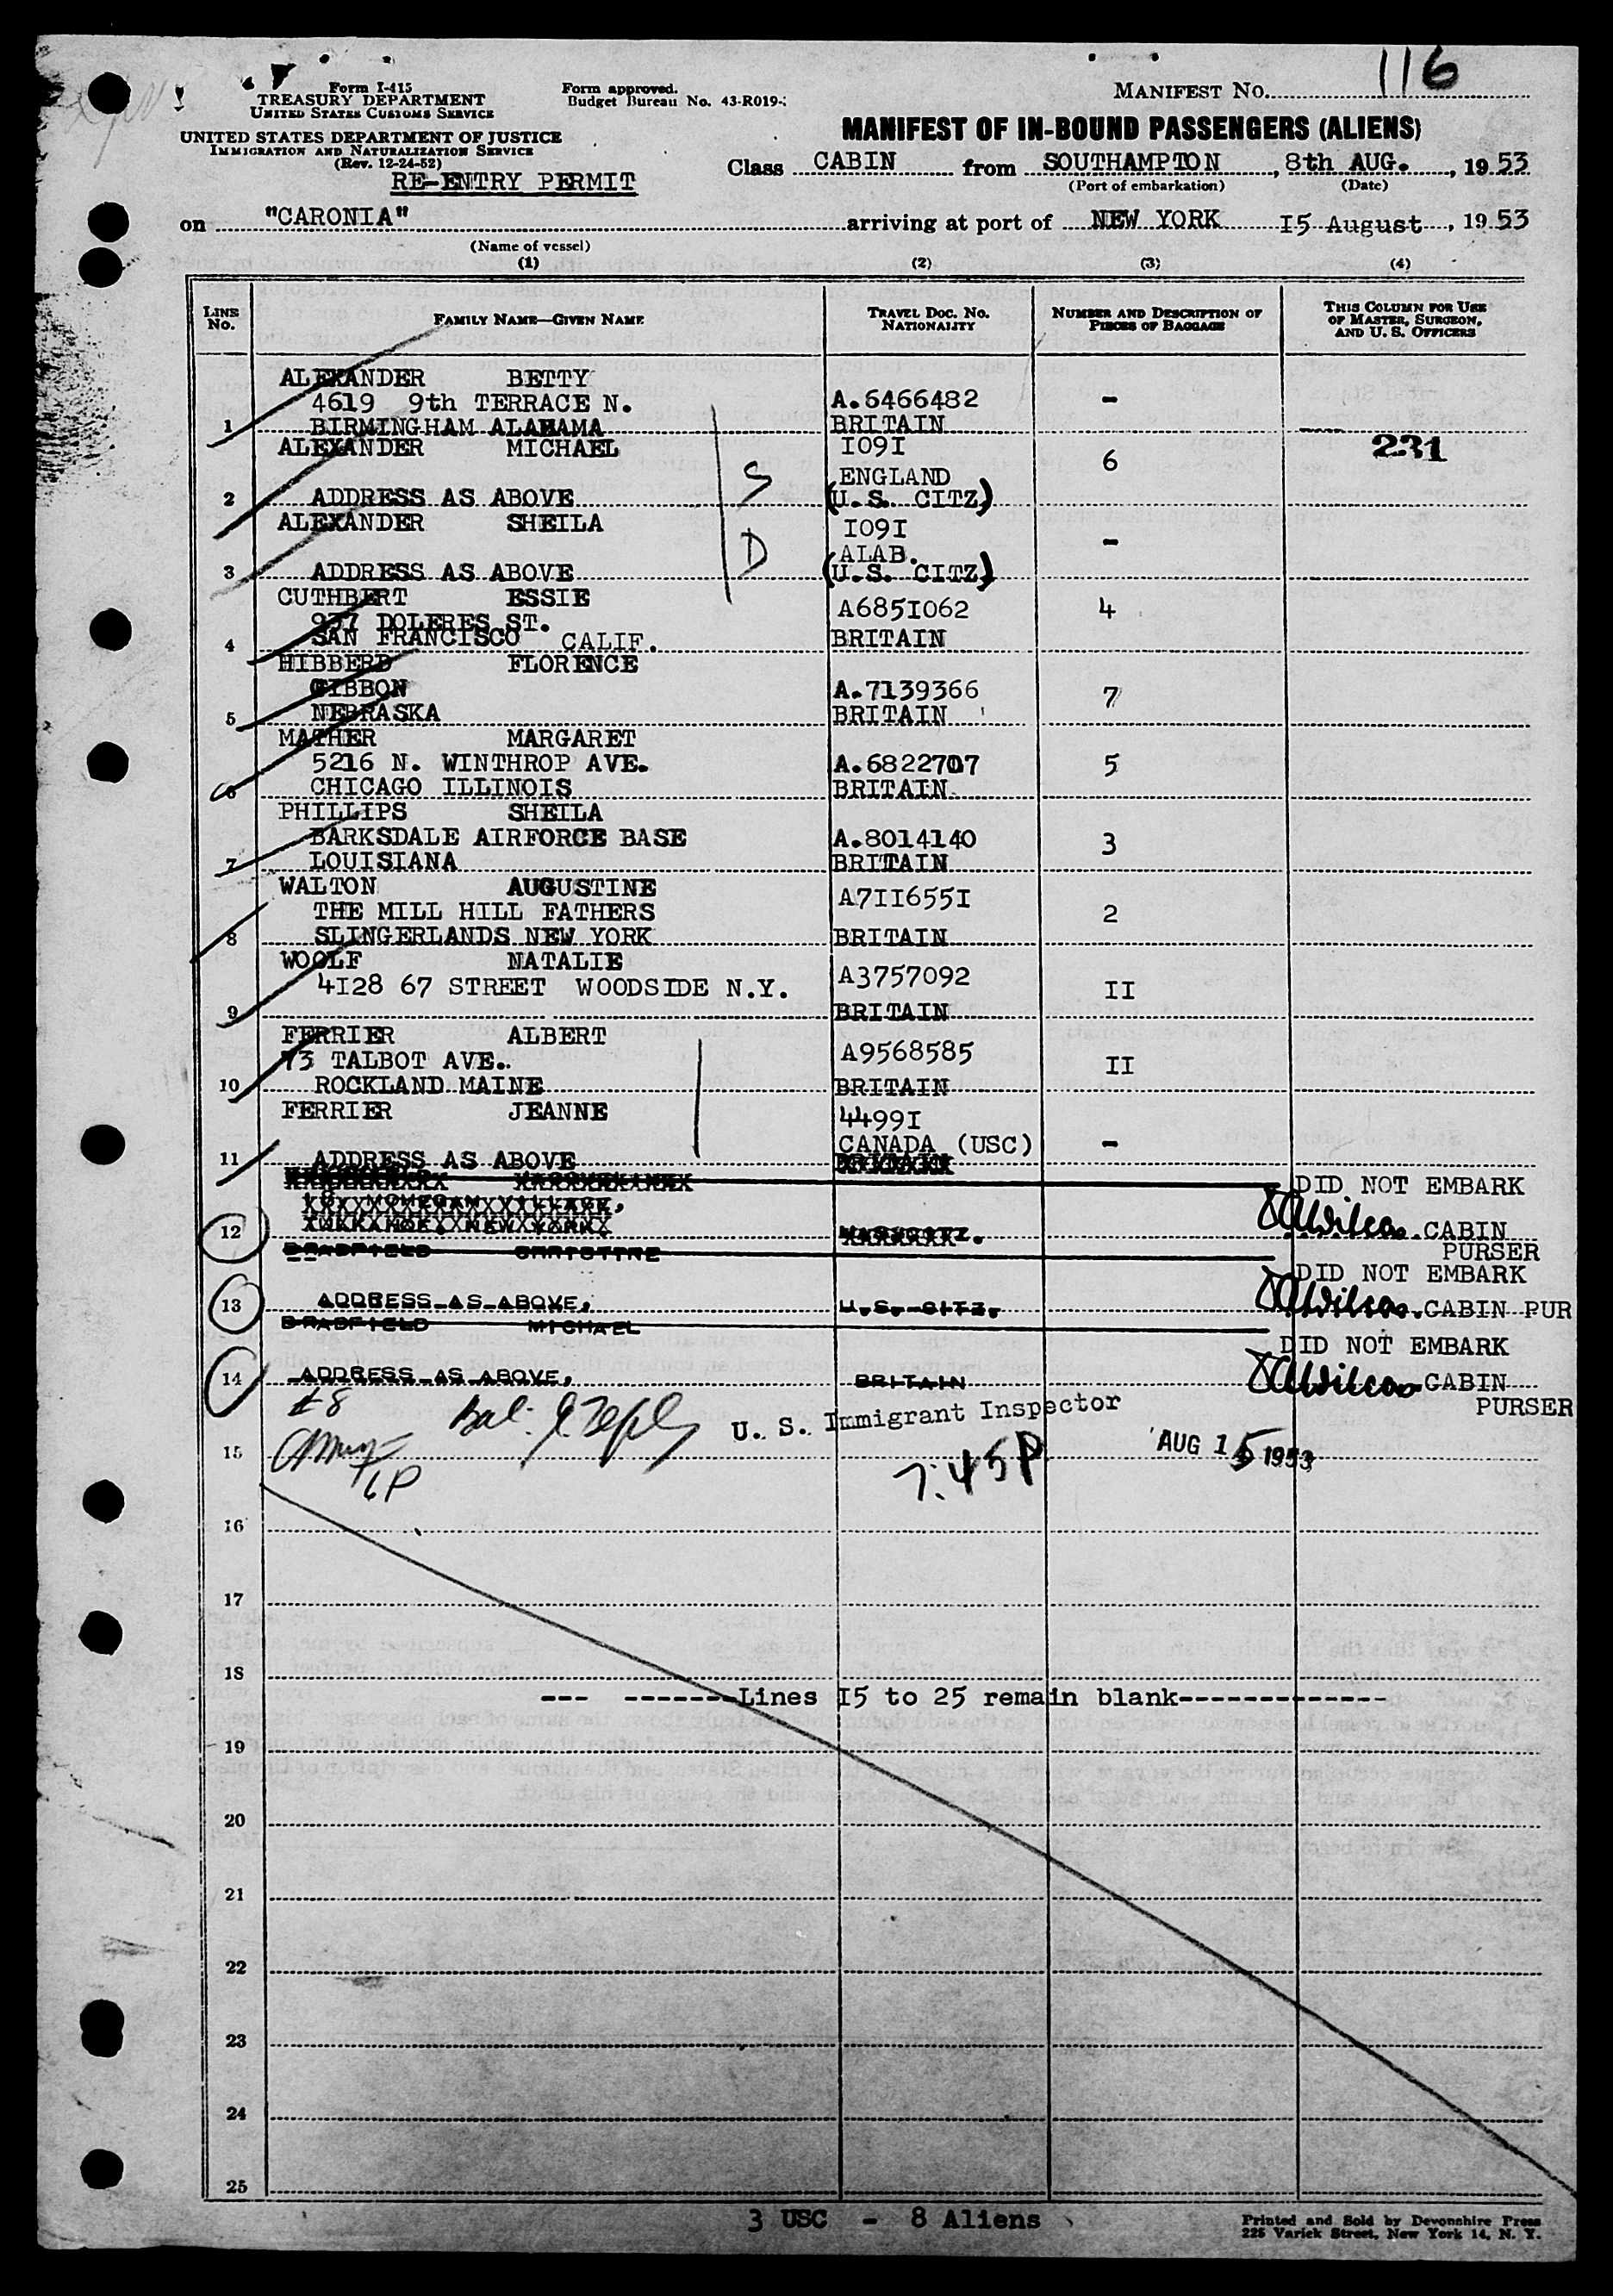 116
Form I-415
TREASURY DEPARTMENT
UNITED STATES CUSTOMS SERVICE
Form approved.
Budget Bureau No. 43-R019-
MANIFEST NO.
UNITED STATES DEPARTMENT OF JUSTICE
IMMIGRATION AND NATURALIZATION SERVICE
(Rev. 12-24-52)
RE-ENTRY PERMIT
MANIFEST OF IN-BOUND PASSENGERS (ALIENS)
Class CABIN from SOUTHAMPTON, 8th AUG., 1953
(Port of embarkation) (Date)
on "CARONIA" arriving at port of NEW YORK 15 August, 1953
(Name of vessel)
(1) (2) (3) (4)
LINE No. FAMILY NAME—GIVEN NAME TRAVEL DOC. NO. NATIONALITY NUMBER AND DESCRIPTION OF PIECES OF BAGGAGE THIS COLUMN FOR USE OF MASTER, SURGEON, AND U. S. OFFICERS
ALEXANDER BETTY
4619 9th TERRACE N. A.6466482 -
1 BIRMINGHAM ALABAMA BRITAIN
ALEXANDER MICHAEL I09I 231
S ENGLAND 6
2 ADDRESS AS ABOVE (U.S. CITZ)
ALEXANDER SHEILA I09I
D ALAB. -
3 ADDRESS AS ABOVE (U.S. CITZ)
CUTHBERT ESSIE A685I062 4
937 DOLERES ST.
4 SAN FRANCISCO CALIF. BRITAIN
HIBBERD FLORENCE
GIBBON A.7139366 7
5 NEBRASKA BRITAIN
MATHER MARGARET
5216 N. WINTHROP AVE. A.6822707 5
6 CHICAGO ILLINOIS BRITAIN
PHILLIPS SHEILA
BARKSDALE AIRFORCE BASE A.8014140 3
7 LOUISIANA BRITAIN
WALTON AUGUSTINE A7II655I
THE MILL HILL FATHERS 2
8 SLINGERLANDS NEW YORK BRITAIN
WOOLF NATALIE A3757092
4I28 67 STREET WOODSIDE N.Y. II
9 BRITAIN
FERRIER ALBERT A9568585
73 TALBOT AVE. II
10 ROCKLAND MAINE BRITAIN
FERRIER JEANNE 4499I
CANADA (USC) -
11 ADDRESS AS ABOVE
DID NOT EMBARK
12 CABIN
PURSER
BRADFIELD CHRISTINE
DID NOT EMBARK
13 ADDRESS AS ABOVE, U.S. CITZ. CABIN PUR
BRADFIELD MICHAEL
DID NOT EMBARK
14 ADDRESS AS ABOVE, BRITAIN CABIN
PURSER
U. S. Immigrant Inspector
15 7:45P AUG 15 1953
16
17
18
--- -------Lines I5 to 25 remain blank-------------
19
20
21
22
23
24
25
3 USC - 8 Aliens
Printed and Sold by Devonshire Press
225 Varick Street, New York 14, N. Y.